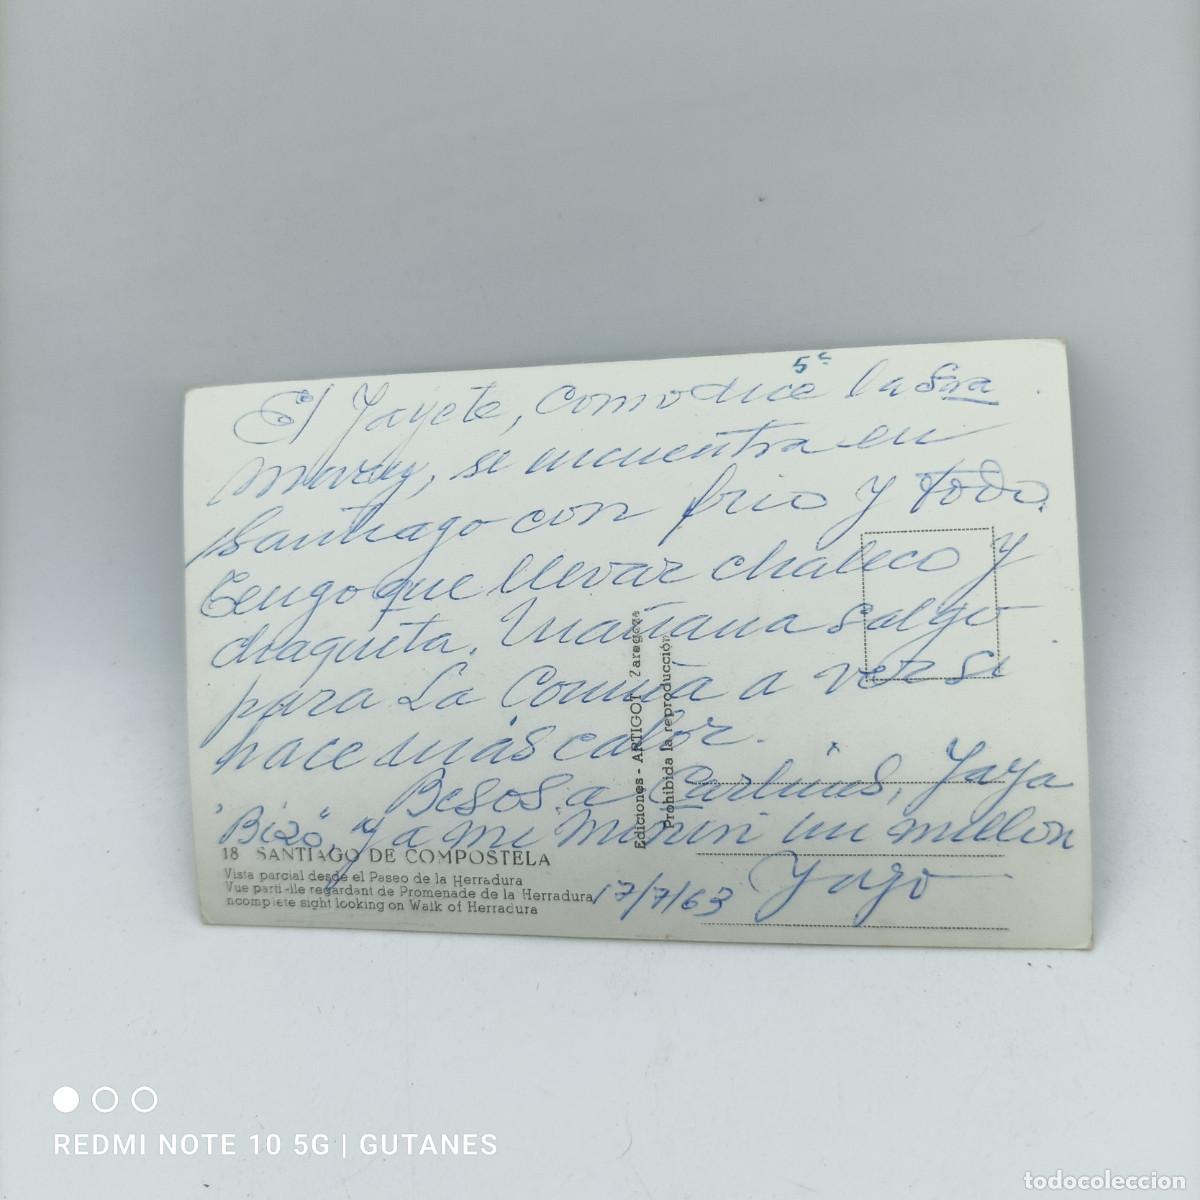 5c
El Yayete, como dice la Sra
Mary, se encuentra en
Santiago con frio y todo.
Tengo que llevar chaleco y
chaqueta. Mañana salgo
para La Coruña a ver si
hace más calor.
Besos a Carlines, Yaya
"Bizo", y a mi Minin un millon
Yayo
17/7/63
18 SANTIAGO DE COMPOSTELA
Vista parcial desde el Paseo de la Herradura
Vue parti-lle regardant de Promenade de la Herradura
ncomplete sight looking on Walk of Herradura
Ediciones - ARTIGOT Zaragoza
Prohibida la reproducción
REDMI NOTE 10 5G | GUTANES
todocoleccion